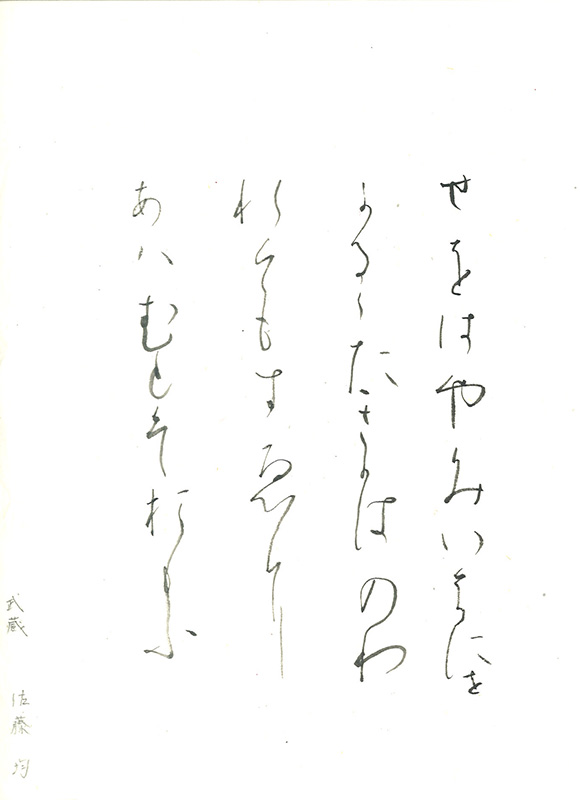 せをはやみいはにせ
かるゝたきかはのわ
れてもすゑに
あはむとそおもふ
武蔵 佐藤